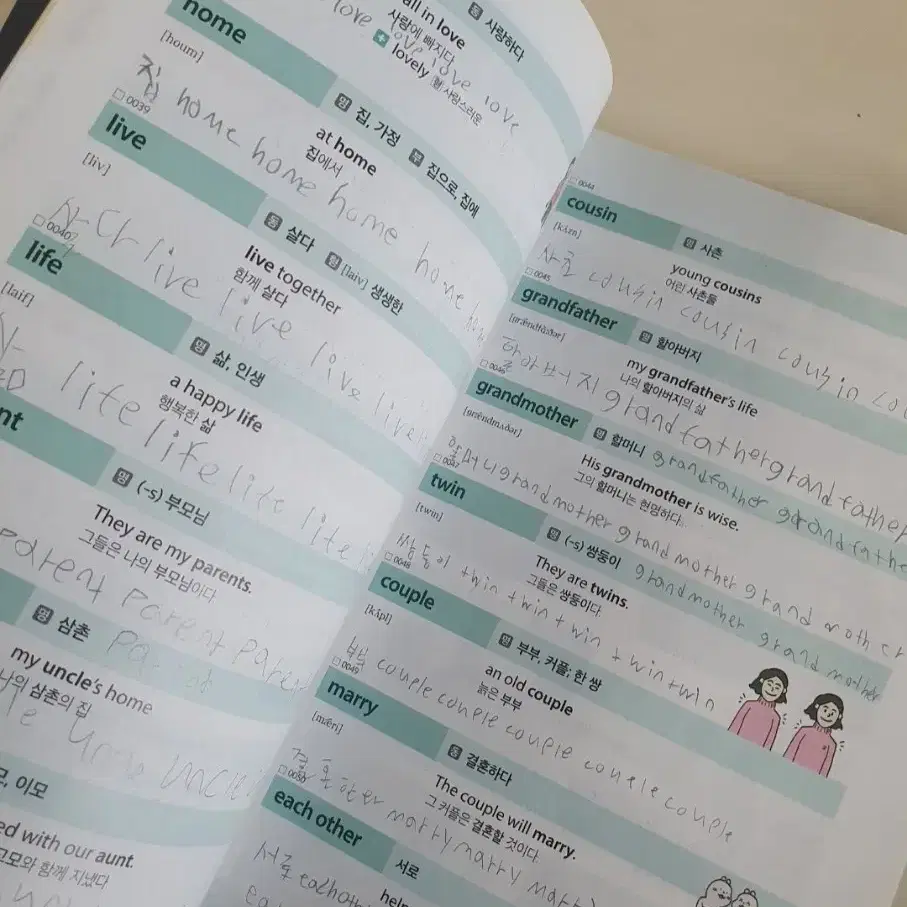 all in love
동 사랑하다
사랑에 빠지다
love love love love
+ lovely 형 사랑스러운
home
[houm]
명 집, 가정 부 집으로, 집에
집 home home home home
at home
집에서
0039
live
[liv]
동 살다 형 [laiv] 생생한
살다 live live live live
live together
함께 살다
0040
life
[laif]
명 삶, 인생
life life life life
a happy life
행복한 삶
nt
명 (-s) 부모님
They are my parents.
그들은 나의 부모님이다
parent parent parent
parent
명 삼촌
my uncle's home
나의 삼촌의 집
uncle
모, 이모
ed with our aunt.
고모와 함께 지냈다
0044
cousin
[kʌ́zn]
명 사촌
young cousins
어린 사촌들
사촌 cousin cousin cousin
0045
grandfather
[grǽndfɑ̀ːðər]
명 할아버지
my grandfather's life
나의 할아버지의 삶
할아버지 grandfather grandfather
grandfather grandfather
0046
grandmother
[grǽndmʌ̀ðər]
명 할머니
His grandmother is wise.
그의 할머니는 현명하다.
할머니 grandmother grandmother grandmother
grandmother grandmother
0047
twin
[twin]
명 (-s) 쌍둥이
They are twins.
그들은 쌍둥이다.
쌍둥이 twin twin twin twin twin
0048
couple
[kʌ́pl]
명 부부, 커플; 한 쌍
an old couple
늙은 부부
부부 couple couple couple couple couple
0049
marry
[mǽri]
동 결혼하다
The couple will marry.
그 커플은 결혼할 것이다
marry marry marry
0050
each other
서로
help
서로